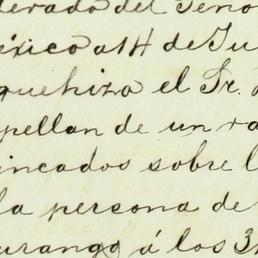 derado del Seno
éxico a 14 de Ju
que hizo el Sr.
pellan de un ra
incados sobre l
la persona de
urango á los 3